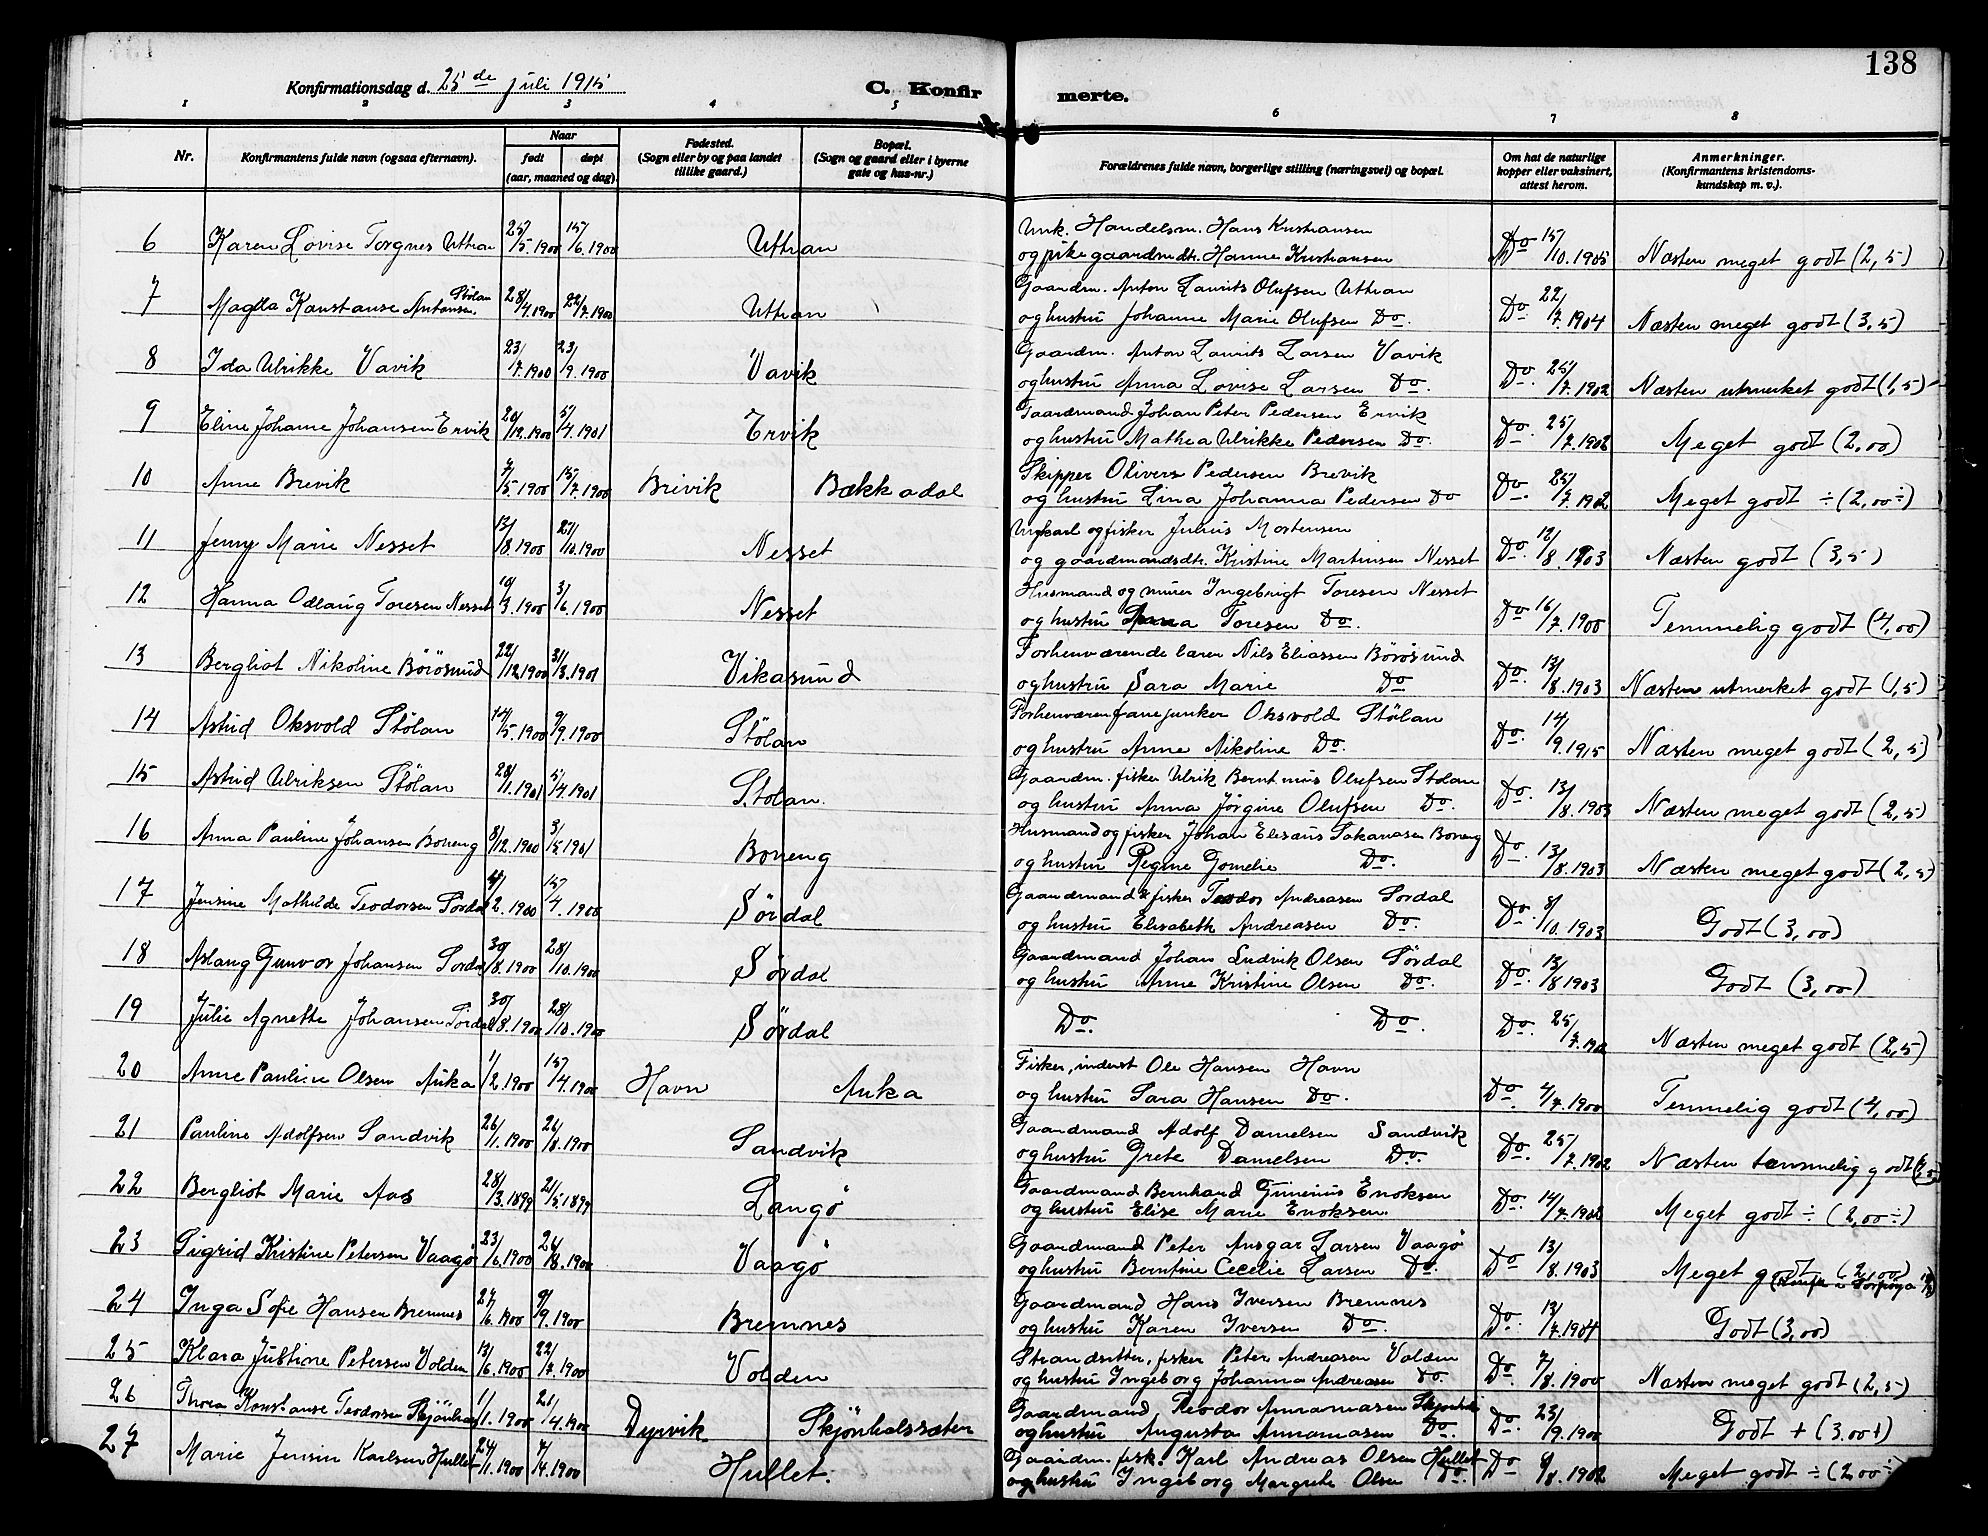 138
Konfirmationsdag d. 25de juli 1915 C. Konfirmerte.
1 2 3 4 5 6 7 8
Nr. Konfirmantens fulde navn (ogsaa efternavn). Naar født døpt (aar, maaned og dag). Fødested. (Sogn eller by og paa landet tillike gaard.) Bopæl. (Sogn og gaard eller i byerne gate og hus-nr.) Forældrenes fulde navn, borgerlige stilling (næringsvei) og bopæl. Om hat de naturlige kopper eller vaksinert, attest herom. Anmerkninger. (Konfirmantens kristendomskundskap m. v.).
6 Karen Lovise Torgnes Uttian 25/5.1900 15/6.1900 Uttian Unk. Handelsm. Hans Kristiansen Do 15/10.1905 Næsten meget godt (2,5)
og pike gaardmdtr. Hanne Kristiansen
7 Magda Konstanse Antonsen Stölan 28/4.1900 22/7.1900 Uttian Gaardm. Anton Laurits Olufsen Uttian Do 22/7.1904 Næsten meget godt (3,5)
og hustru Johanne Marie Olufsen Do.
8 Ida Ulrikke Vavik 23/7.1900 23/9.1900 Vavik Gaardm. Anton Laurits Larsen Vavik Do 25/7.1902 Næsten utmerket godt (1,5)
og hustru Anna Lovise Larsen Do.
9 Eline Johanne Johansen Ervik 20/12.1900 5/4.1901 Ervik Gaardmand Johan Peter Pedersen Ervik Do 25/7.1902 Meget godt (2,00)
og hustru Mathea Ulrikke Pedersen Do.
10 Anne Brevik 7/5.1900 15/7.1900 Brivik Bækkadal Skipper Olivers Pedersen Brevik Do 25/7.1902 Meget godt ÷ (2,00÷)
og hustru Lina Johanna Pedersen Do
11 Jenny Marie Nesset 13/8.1900 /10.1900 Nesset Ungkarl og fisker Julius Mortensen Do 12/8.1903 Næsten godt (3,5)
og gaardmandsdtr. Kristine Martinsen Nesset
12 Hanna Odlaug Toresen Nesset 10/3.1900 3/6.1900 Nesset Husmand og murer Ingebrigt Toresen Nesset Do 16/7.1900 Temmelig godt (4,00)
og hustru Anna Toresen Do.
13 Bergliot Nikoline Börösund 22/12.1900 31/3.1901 Vikasund Forhenværende lærer Nils Eliassen Börösund Do. 13/8.1903 Næsten utmerket godt (1,5)
og hustru Sara Marie Do
14 Astrid Oksvold Stölan 14/5.1900 9/9.1900 Stölan Forhenværen fanejunker Oksvold Stölan Do. 14/9.1915 Næsten meget godt (2,5)
og hustru Anne Nikoline Do.
15 Astrid Ulriksen Stölan 28/1.1901 5/4.1901 Stölan. Gaardm. fisker Ulrik Berntinus Olufsen Stölan Do. 13/8.1903 Næsten meget godt (2,5)
og hustru Anna Jörgine Olufsen Do.
16 Anna Pauline Johansen Boneng 8/12.1900 3/5.1901 Boneng Husmand og fisker Johan Elesæus Sakariasen Boneng Do. 13/8.1903 Næsten meget godt (2,5)
og hustru Regine Gomelie Do.
17 Jensine Mathilde Teodorsen Sördal /2.1900 15/4.1900 Sördal Gaardmand & fisker Teodor Andreasen Sördal Do. 8/10.1903 Godt (3,00)
og hustru Elisabeth Andreasen Do.
18 Aslaug Gunvor Johansen Sördal 30/8.1900 28/10.1900 Sördal Gaardmand Johan Ludvik Olsen Sördal Do. 13/8.1903 Godt (3,00)
og hustru Anne Kristine Olsen Do.
19 Julie Agnette Johansen Sördal 30/8.1900 28/10.1900 Sördal Do. Do. Do. 25/7.1902 Næsten meget godt (2,5)
20 Anne Pauline Olsen Auka 1/2.1900 15/4.1900 Havn Auka Fisker, inderst Ole Hansen Havn Do. 4/7.1900 Temmelig godt (4,00)
og hustru Sara Hansen Do.
21 Pauline Adolfsen Sandvik 26/11.1900 26/8.1900 Sandvik Gaardmand Adolf Danielsen Sandvik Do. 25/7.1902 Næsten temmelig godt
og hustru Grete Danielsen Do.
22 Bergliot Marie Aas 28/3.1899 21/5.1899 Langö Gaardmand Bernhard Gunerius Enoksen Do. 14/7.1902 Meget godt ÷ (2,00÷)
og hustru Elise Marie Enoksen
23 Sigrid Kristine Petersen Vaagö 23/6.1900 26/8.1900 Vaagö Gaardmand Peter Ansgar Larsen Vaagö Do 13/8.1903 Meget godt (2,00)
og hustru Berntine Cecelie Larsen Do.
24 Inga Sofie Hansen Bremnes 27/6.1900 9/9.1900 Bremnes Gaardmand Hans Iversen Bremnes Do. 13/7.1904 Godt (3,00)
og hustru Karen Iversen Do.
25 Klara Justine Petersen Volden 13/6.1900 22/7.1900 Volden Strandsitter, fisker Peter Andreasen Volden Do. 7/8.1900 Næsten meget godt (2,5)
og hustru Ingeborg Johanna Andreasen Do
26 Thora Konstanse Teodorsen 1/1.1900 21/4.1900 Dyrvik Skjönhalssæter Gaardmand, Teodor Do. 23/9.1900 Godt + (3.00+)
og hustru Augusta Do.
27 Marie Jensin Karlsen Hullet 24/1.1900 /4.1900 Hullet. Gaardm. fisk. Karl Andreas Olsen Hullet Do /8.1902 Meget godt ÷ (2,00÷
og hustru Ingeborg Margrete Olsen Do.